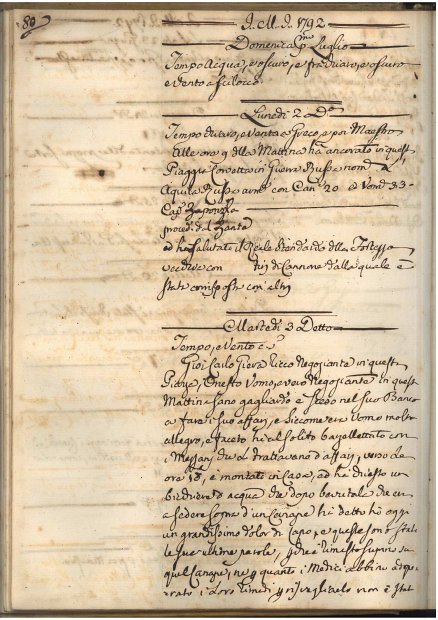 80
A. M. D. 1792
Domenica p.mo Luglio
Tempo Acqua, e oscuro, e fra chiaro, e oscuro
e Vento a Scilocco
Lunedi 2 D.o
Tempo chiaro, e Vento Greco, e poi Maestro
Alle ore 9 della Mattina hà ancorato in quest
Piagge Corvetta in Guerra Russa nom.
Aquila Russa arm. con Can. 20
Cap.
proced. dal Zante
ed hà salutato il Reale Stendardo della Fortezza
con tiri di Cannone dalla quale è
stata corrisposta con altri
Martedi 3 Detto
Tempo, e Vento
Gio: Carlo ricco Negoziante in quest
Piazza, Onesto Uomo, e vero Negoziante in quest
Mattina sano gagliardo e nel suo Banco
a fare i suoi affari, e siccome era Uomo molto
allegro, e faceto hà al solito con
i che trattavano d'affari, verso le
ore è montato in Casa, ed hà chiesto un
bicchiere d'acqua che dopo bevutala
a sedere sopra d'un Canapè hà detto hò oggi
un grandissimo dolor di Capo, e queste sono state
le sue ultime parole, ed è rimasto su
quel Canapè, ne quanto i Medici abbino
i loro rimedj non è stat